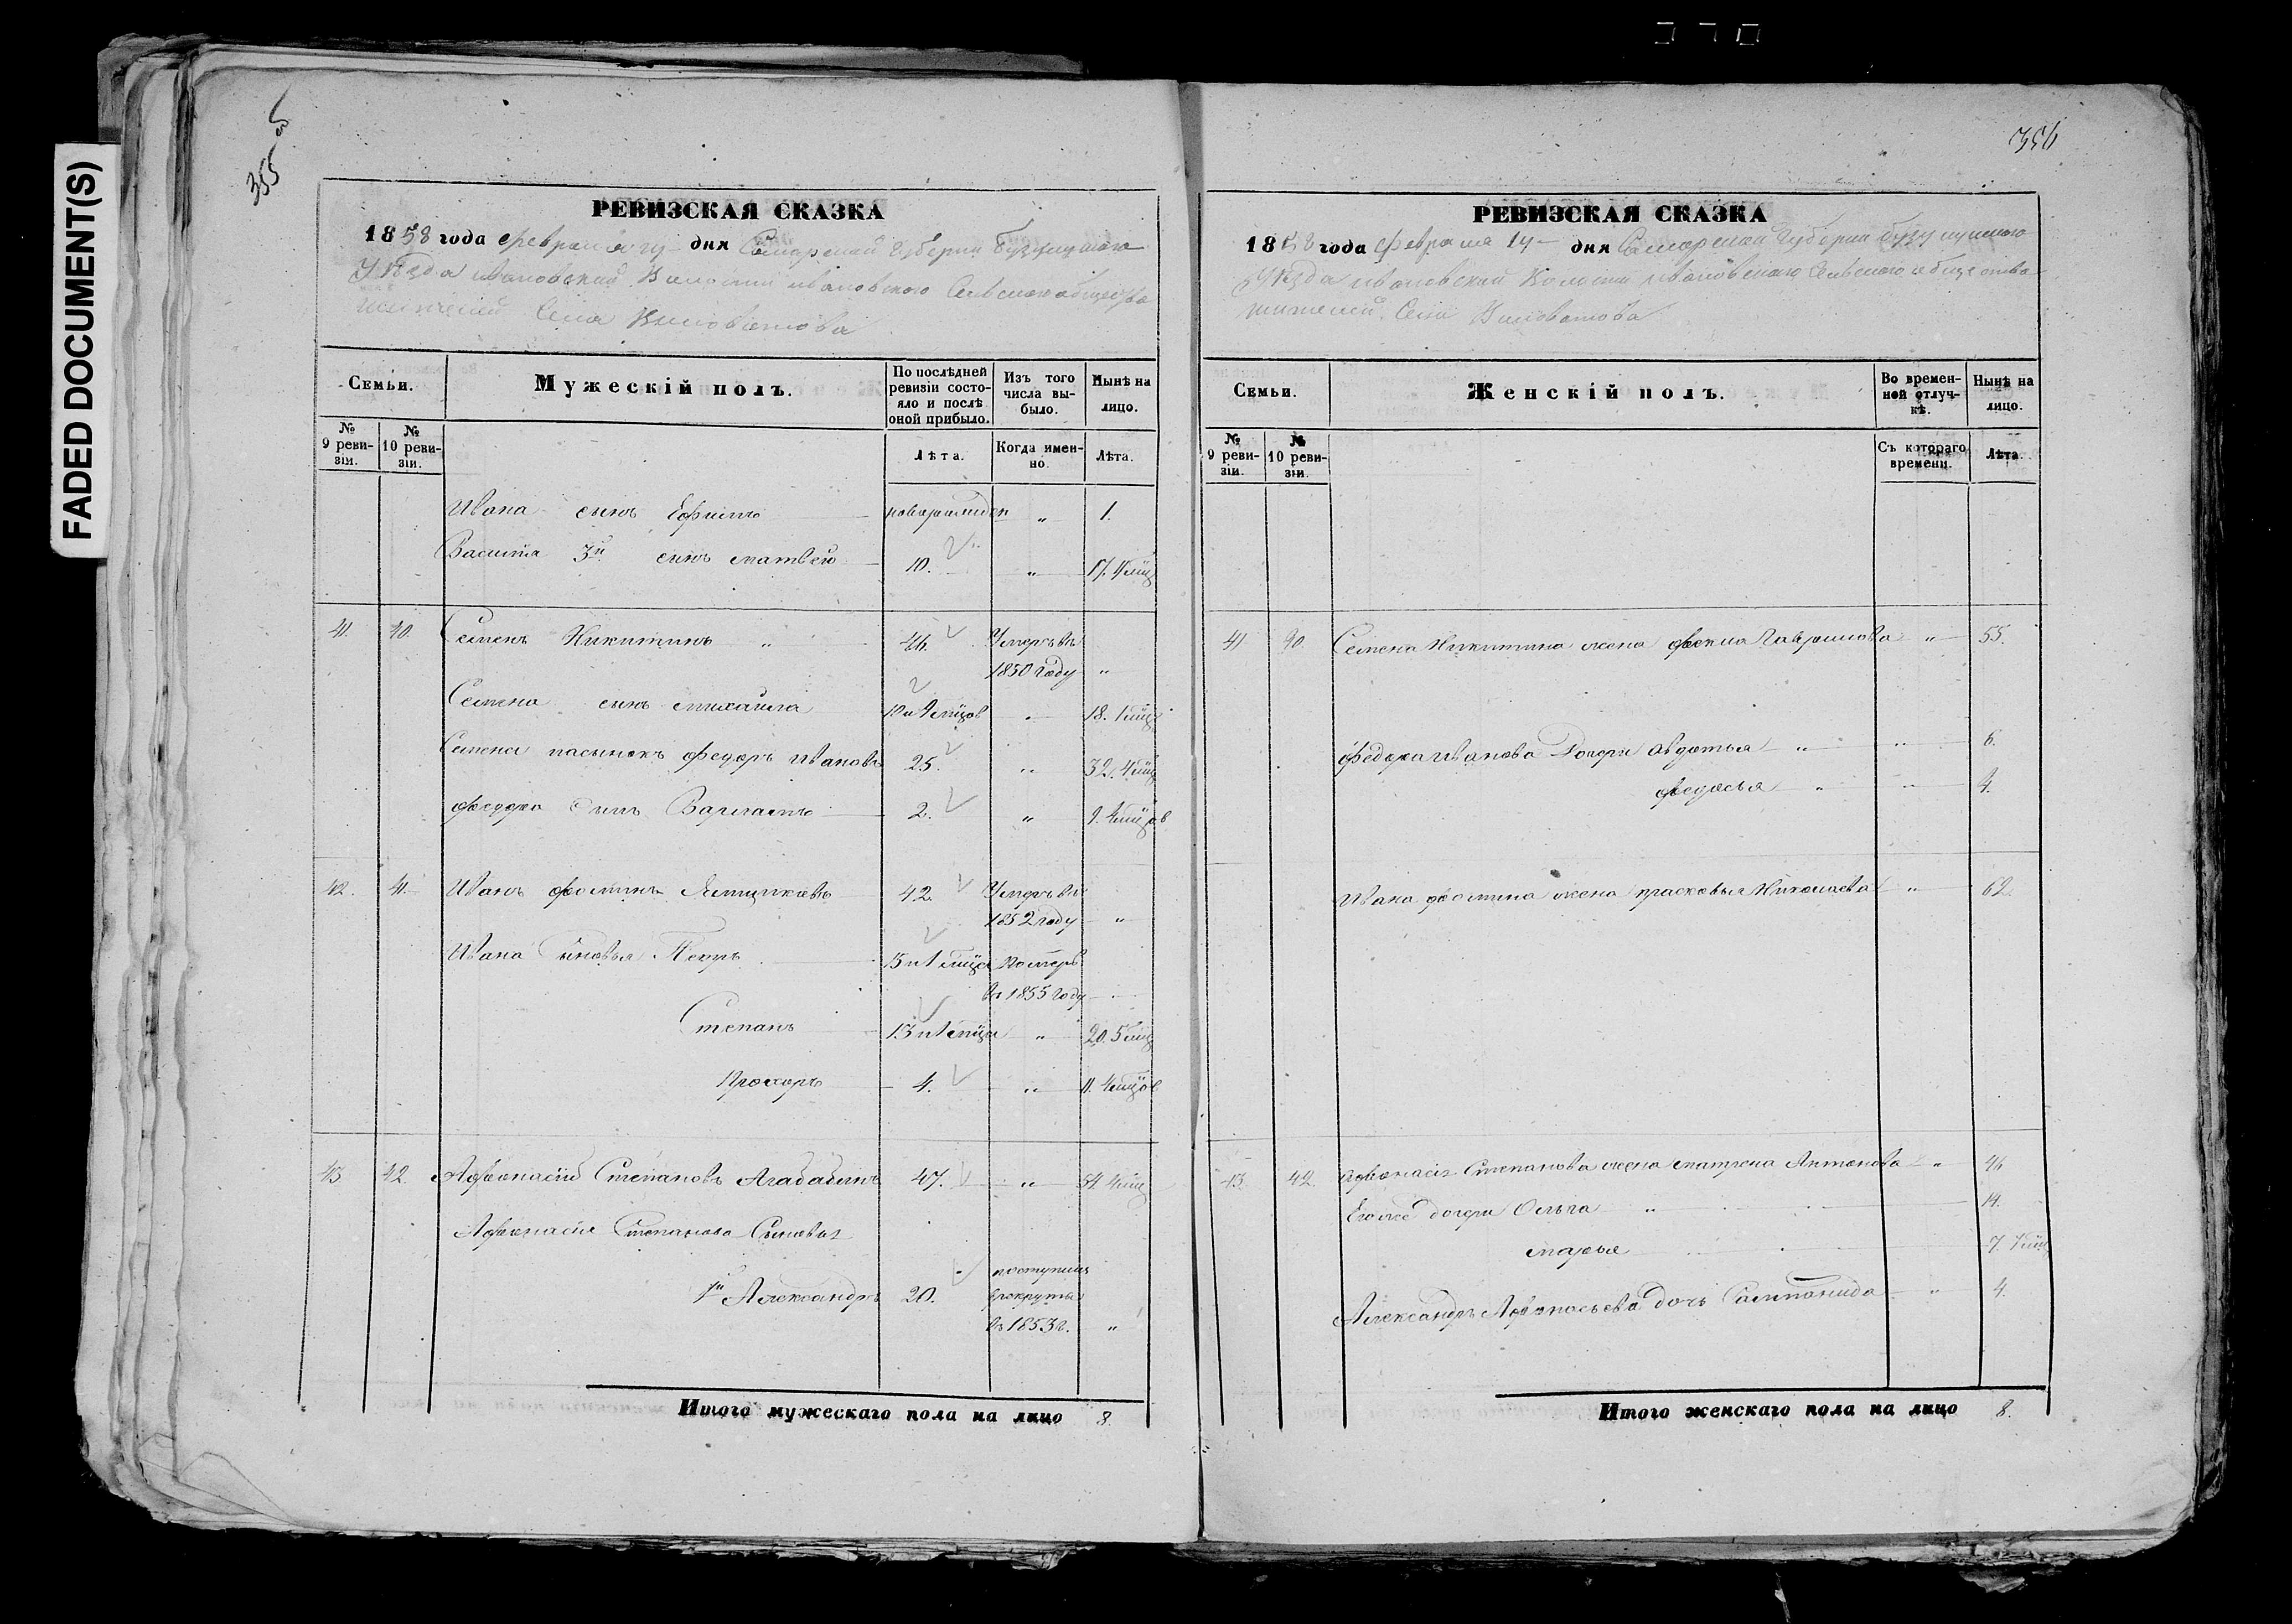 FADED DOCUMENT(S)
355
РЕВИЗСКАЯ СКАЗКА
1858 года Февраля 14 дня Самарской Губернии Бузулукского
Уѣзда Ивановской Волости Ивановскаго Сельскаго общества
жителей Села
Семьи.
Мужескій полъ.
По послѣдней ревизіи состояло и послѣ оной прибыло.
Изъ того числа выбыло.
Нынѣ на лицо.
№ 9 ревизіи.
№ 10 ревизіи.
Лѣта.
Когда именно.
Лѣта.
Ивана сынъ Ефимъ „ 1.
Василія 3й сынъ Матвей 10. „ 17. 4 мѣц
41. 40. Семенъ Никитинъ „ 46. Умеръ въ
1850 году „
Семена сынъ Михайла „ 18. 1 мѣц
Семена пасынокъ Федоръ Ивановъ 25. „ 32. 4 мѣц
Федора сынъ Варламъ 2. „ 9. 4 мѣцов
42. 41. Иванъ Фоминъ 42. Умеръ въ
1852 году „
Ивана Сыновья Петръ 15 и 1 мѣца Померъ
въ 1855 году
Степанъ 13 и 1 мѣца „ 20. 5 мѣц
Прохоръ 4. „ 11. 4 мѣцов
43 42. Афонасій Степановъ 47. „ 54 4 мѣц
Афонасія Степанова Сыновья
1й Александръ 20. поступилъ
въ рекруты
въ 1853 г. „
Итого мужескаго пола на лицо 8.
356
РЕВИЗСКАЯ СКАЗКА
1858 года Февраля 14 дня Самарской Губернии Бузулукского
Уѣзда Ивановской Волости Ивановскаго Сельскаго общества
жителей Села
Семьи.
Женскій полъ.
Во временной отлучкѣ.
Нынѣ на лицо.
№ 9 ревизіи.
№ 10 ревизіи.
Съ котораго времени.
Лѣта.
41 40. Семена Никитина жена Фекла Гаврилова „ 55.
Федора Иванова Дочери Авдотья „ „ 6.
Федосья „ „ 4.
Ивана Фомина жена Прасковья Николаева „ 62
43. 42. Афонасія Степанова жена Матрена Антонова „ 46
Его же дочери Ольга „ 14.
Марья
Александръ Афонасьева дочь „ 4.
Итого женскаго пола на лицо 8.